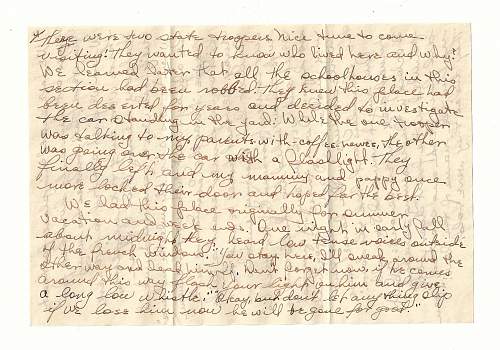 There were two state troopers. Nice time to come
visiting! They wanted to know who lived here and why?
We learned later that all the schoolhouses in this
section had been robbed. They knew this place had
been deserted for years and decided to investigate
the car standing in the yard. While the one trooper
was talking to my parents with coffee, the other
was going over the car with a flashlight. They
finally left and my mommy and pappy once
more locked their door and hoped for the best.
We had this place originally for summer
vacation and week ends. One night in early fall
about midnight they heard low tense voices outside
of the french window. "You stay here, I'll sneak around the
other way and head him off. Don't forget now, if he comes
around this way flash your light on him and give
a long low whistle." "Okay, but don't let anything slip
if we lose him now he will be gone for good."